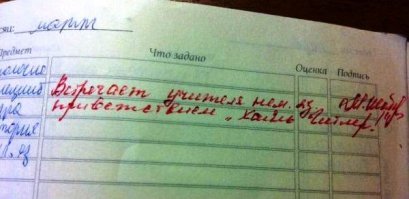 март
Предмет Что задано Оценка Подпись
Встречает учителя нем. яз
приветствием „Хайль Гитлер!"
тория
яз